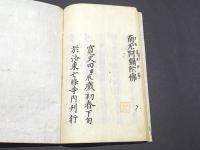 南无阿彌陀佛
寛文四甲辰歳初春下旬
於洛東七條寺内刊行